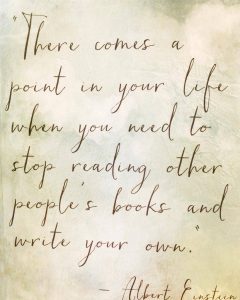 "There comes a
point in your life
when you need to
stop reading other
people's books and
write your own."
- Albert Einstein